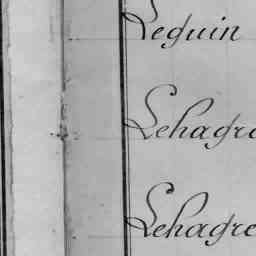 Leguin
Lehagre
Lehagre